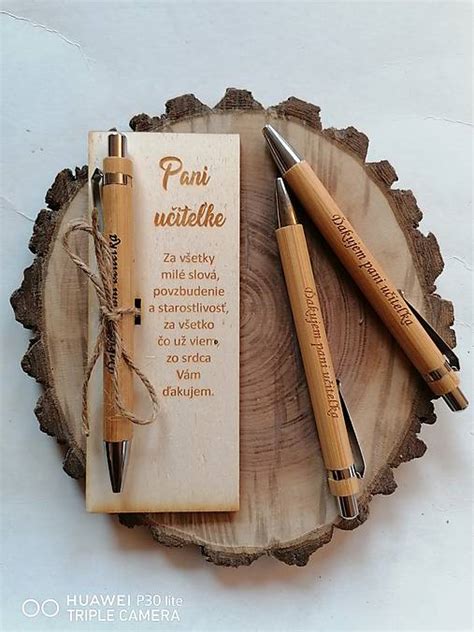 Pani
učiteľke
Za všetky
milé slová,
povzbudenie
a starostlivosť,
za všetko
čo už viem,
zo srdca
Vám
ďakujem.
Ďakujem pani učiteľka
Ďakujem pani učiteľka
HUAWEI P30 lite
TRIPLE CAMERA